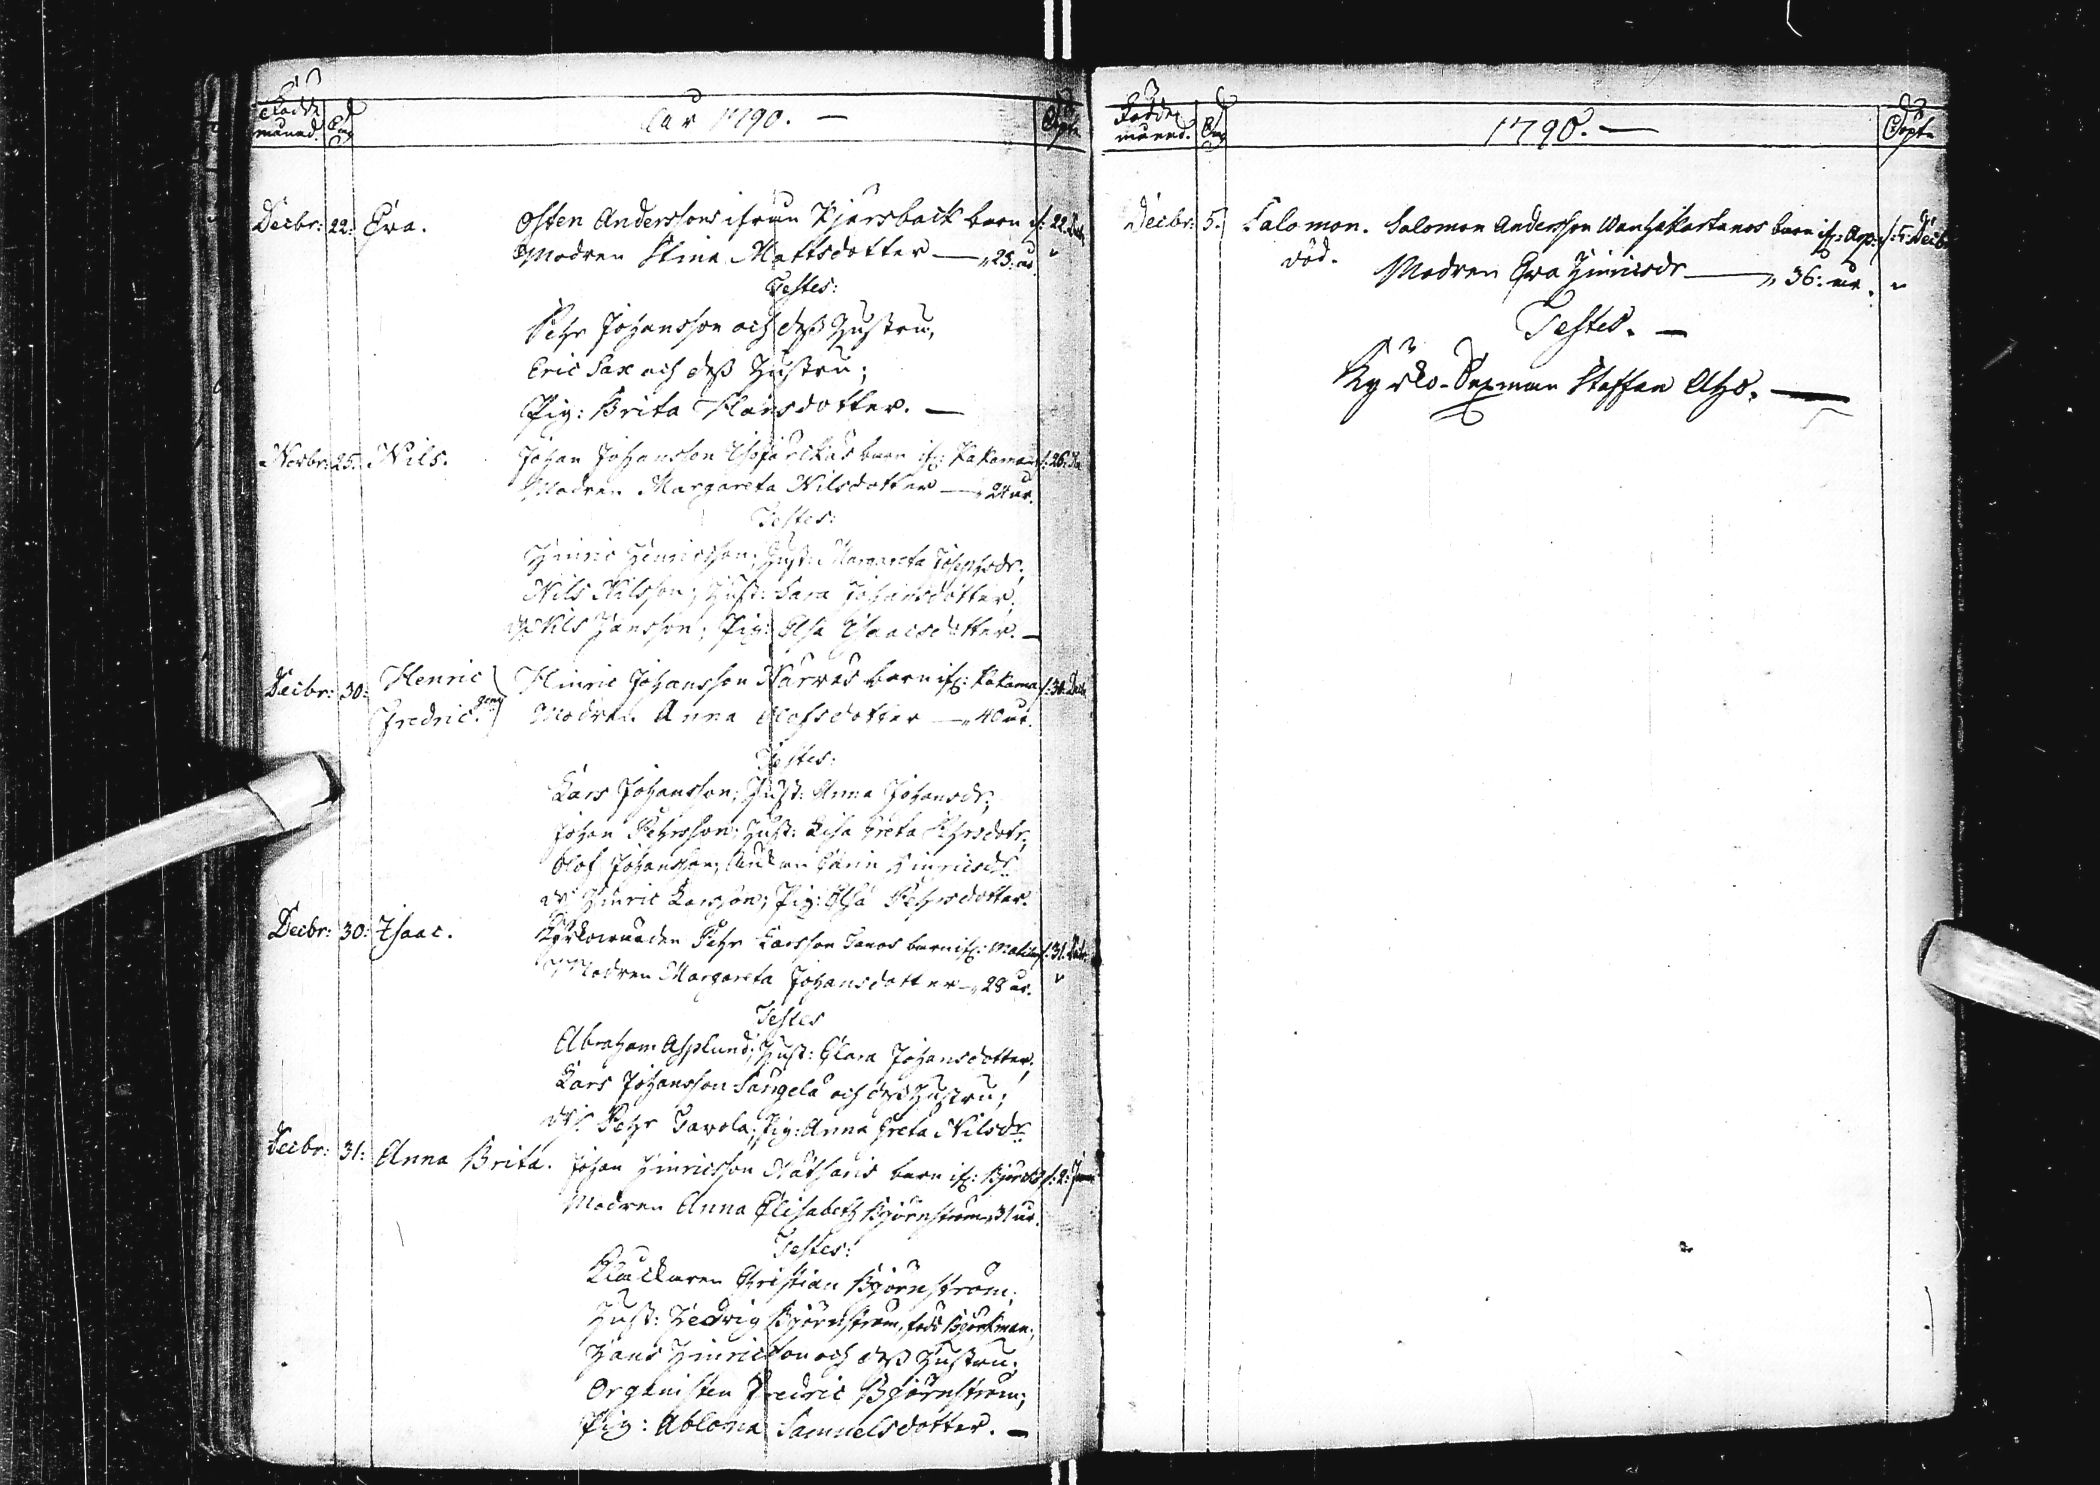 Född månad. Dag
Åår 1790. —
Döpt.
Decbr: 22: Eva. Östen Anderssons ifrån Kjärsback barn d: 22. Decbr
Modren Stina Mattsdotter — „ 25: år.
Testes:
Pehr Johansson och dess Hustru,
Eric Sax och dess Hustru;
Pig: Brita Hansdotter. —
Novbr: 25. Nils. Johan Johansson barn if: Kakama d: 26:
Modren Margareta Nilsdotter — „ 24 år.
Testes:
Hinric Henricsson; Hust: Margareta Josephsdr;
Nils Nilsson; Hust: Sara Johansdotter;
Nils Hansson; Pig: Elsa Isaacsdotter. —
Decbr: 30: Henric Fredric. Hinric Johansson Narvas barn if: Kakama d: 30. Decbr
Modren Anna Olofsdotter — „ 40 år.
Testes:
Lars Johansson; Hust: Anna Johansdr;
Johan Pehrsson; Hust: Lisa Greta Pehrsdotr;
Olof Johansson; Änkan Carin Hinricsdr
dr Hinric Larsson; Pig: Elsa Pehrsdotter.
Decbr: 30: Isaac. Kyrkowärden Pehr Larsson barn if: d: 31. Decbr
Modren Margareta Johansdotter — „ 28 år.
Testes
Abraham Asplund; Hust: Clara Johansdotter;
Lars Johansson Sangela och dess Hustru;
dr Pehr Tavola; Pig: Anna Greta Nilsdr
Decbr: 31: Anna Brita. Johan Hinricsson barn if: d: 2: Jan
Modren Anna Elisabeth Björnström „ 31 år.
Testes:
Klåckaren Christian Björnström;
Hust: Hedvig Björnström, född Björkman;
Hans Hinricsson och dess Hustru;
Organisten Fredric Björnström;
Pig: Ablona Samuelsdotter. —
Född månad. Dag
1790. —
Döpt.
Decbr: 5. Salomon. Salomon Andersson barn if: d: 5: Decbr
död. Modren Eva Hinricsdr — „ 36: år. „
Testes. —
Kyrko-Sexman Staffan Aho. —